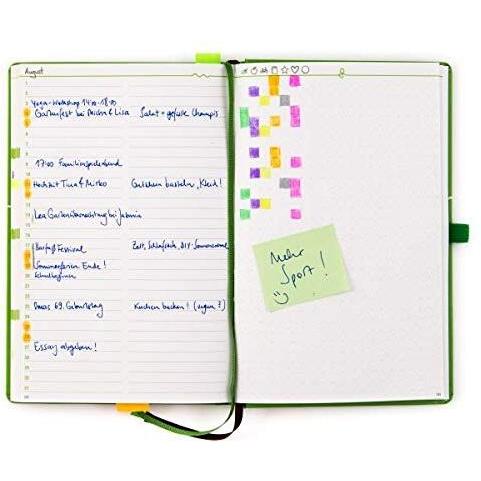 August
Yoga-Workshop 14:00-18:00
Gartenfest bei Mischa & Lisa Salat + gefüllte Champis
17:00 Familienspieleabend
Hochzeit Tina & Mirko Gutschein basteln, Kleid!
Lea Gartenübernachtung bei
Barfuß Festival Zelt, Schlafsack, DIY-
Sommerferien Ende!
Schulbeginn
Omas 69. Geburtstag Kuchen backen! (vegan?)
Essay abgeben!
Mehr
Sport!